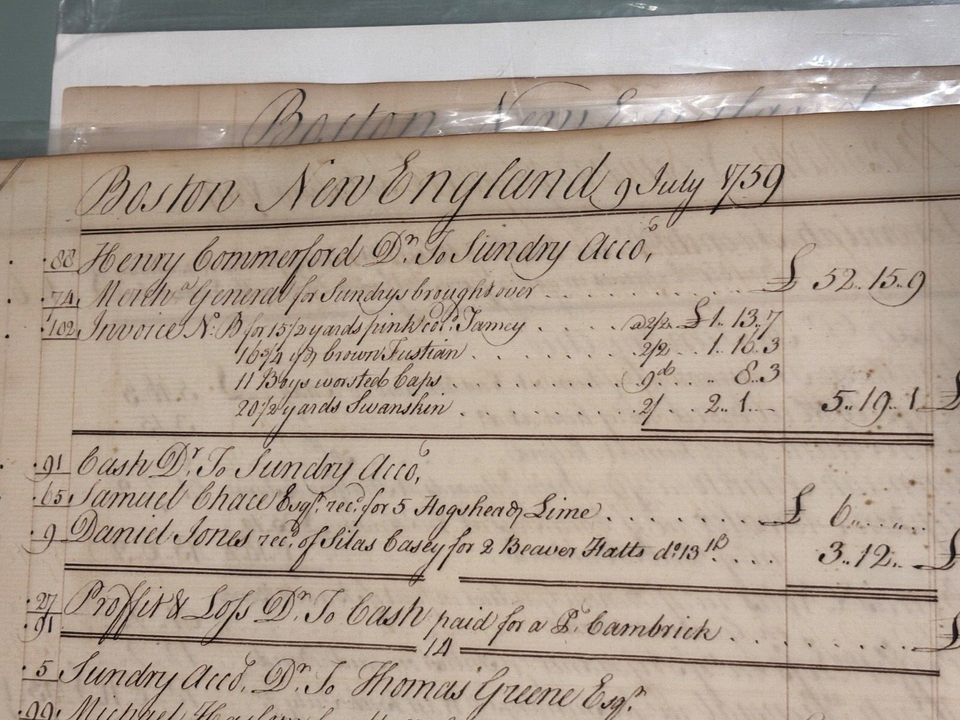 Boston New England
Boston New England 9 July 1759
88 Henry Commerford Dr. To Sundry Acco.s
£ 52..15..9
74 Merch.a General for Sundrys brought over
102 Invoice No. B for 15 1/2 yards pink col.d Tamey @ 2/2 £1..13..7
16 3/4 yds brown Fustian 2/2 1..16..3
11 Boys worsted Caps 9d 8..3
20 1/2 yards Swanskin 2/ 2..1.. 5..19..1 £
91 Cash Dr. To Sundry Acco.s
65 Samuel Chace Esqr. rec.d for 5 Hogsheads Lime £ 6..
9 Daniel Jones rec.d of Silas Casey for 2 Beaver Hatts 3..12.. £
27 Proffit & Loss Dr. To Cash paid for a Ps. Cambrick £
91
14
5 Sundry Acco.s Dr. To Thomas Greene Esqr.
99 Michael